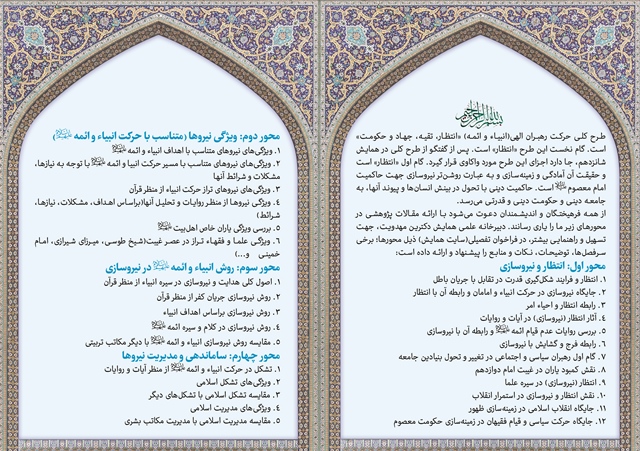 طرح کلی حرکت رهبران الهی(انبیاء و ائمه) «انتظار، تقیه، جهاد و حکومت»
است. گام نخست این طرح «انتظار» است. پس از گفتگو از طرح کلی در همایش
شانزدهم، جا دارد اجزای این طرح مورد واکاوی قرار گیرد. گام اول «انتظار» است
و حقیقت آن آمادگی و زمینه‌سازی و به عبارت روشن‌تر نیروسازی جهت حاکمیت
امام معصوم است. حاکمیت دینی با تحول در بینش انسان‌ها و پیوند آنها، به
جامعه دینی و حکومت دینی و قدرتی می‌رسد.
از همه فرهیختگان و اندیشمندان دعوت می‌شود با ارائه مقالات پژوهشی در
محورهای زیر ما را یاری رسانند. دبیرخانه علمی همایش دکترین مهدویت، جهت
تسهیل و راهنمایی بیشتر، در فراخوان تفصیلی(سایت همایش) ذیل محورها؛ برخی
سرفصل‌ها، توضیحات، نکات و منابع را پیشنهاد و ارائه داده است:
محور اول: انتظار و نیروسازی
۱. انتظار و فرایند شکل‌گیری قدرت در تقابل با جریان باطل
۲. جایگاه نیروسازی در حرکت انبیاء و امامان و رابطه آن با انتظار
۳. رابطه انتظار و احیاء امر
۴. آثار انتظار (نیروسازی) در آیات و روایات
۵. بررسی روایات عدم قیام ائمه و رابطه آن با نیروسازی
۶. رابطه فرج و گشایش با نیروسازی
۷. گام اول رهبران سیاسی و اجتماعی در تغییر و تحول بنیادین جامعه
۸. نقش کمبود یاران در غیبت امام دوازدهم
۹. انتظار (نیروسازی) در سیره علما
۱۰. نقش انتظار و نیروسازی در استمرار انقلاب
۱۱. جایگاه انقلاب اسلامی در زمینه‌سازی ظهور
۱۲. جایگاه حرکت سیاسی و قیام فقیهان در زمینه‌سازی حکومت معصوم
محور دوم: ویژگی نیروها (متناسب با حرکت انبیاء و ائمه)
۱. ویژگی‌های نیروهای متناسب با اهداف انبیاء و ائمه
۲. ویژگی‌های نیروهای متناسب با مسیر حرکت انبیا و ائمه با توجه به نیازها،
مشکلات و شرائط آنها
۳. ویژگی‌های نیروهای تراز حرکت انبیاء از منظر قرآن
۴. ویژگی‌های نیروها از منظر روایات و تحلیل آنها(براساس اهداف، مشکلات، نیازها،
شرائط)
۵. بررسی ویژگی یاران خاص اهل‌بیت
۶. ویژگی علما و فقهاء تراز در عصر غیبت(شیخ طوسی، میرزای شیرازی، امام
خمینی و...)
محور سوم: روش انبیاء و ائمه در نیروسازی
۱. اصول کلی هدایت و نیروسازی در سیره انبیاء از منظر قرآن
۲. روش نیروسازی جریان کفر از منظر قرآن
۳. روش نیروسازی براساس اهداف انبیاء
۴. روش نیروسازی در کلام و سیره ائمه
۵. مقایسه روش نیروسازی انبیاء و ائمه با دیگر مکاتب تربیتی
محور چهارم: ساماندهی و مدیریت نیروها
۱. تشکل در حرکت انبیاء و ائمه از منظر آیات و روایات
۲. ویژگی‌های تشکل اسلامی
۳. مقایسه تشکل اسلامی با تشکل‌های دیگر
۴. ویژگی‌های مدیریت اسلامی
۵. مقایسه مدیریت اسلامی با مدیریت مکاتب بشری